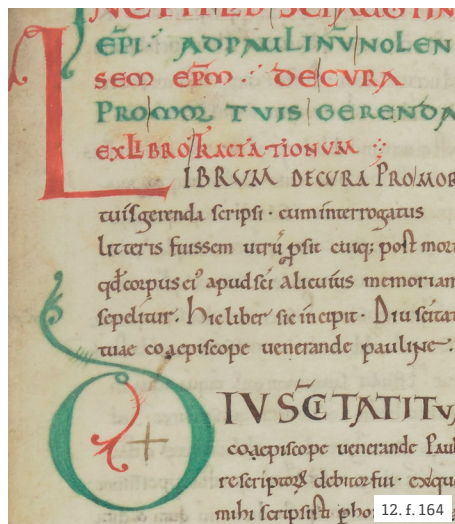 EPI · AD PAULINŪ NOLEN
SEM EPM · DE CVRA
PRO MOR TVIS GERENDA
EX LIBRO RACTATIONUM
LIBRUM DE CURA PRO MOR
tuis gerenda scripsi · cum interrogatus
litteris fuissem utrū ꝓsit cuiq; post mor
qđ corpus ei᾿ apud sci alicuius memoriam
sepelitur. Hic liber sic incipit · Diu scitat
tuae coaepiscope uenerande pauline.
DIU SCITATITU
coaepiscope uenerande Pau
rescriptorꝝ debitor fui · exequ
mihi scripsisti pho
12. f. 164